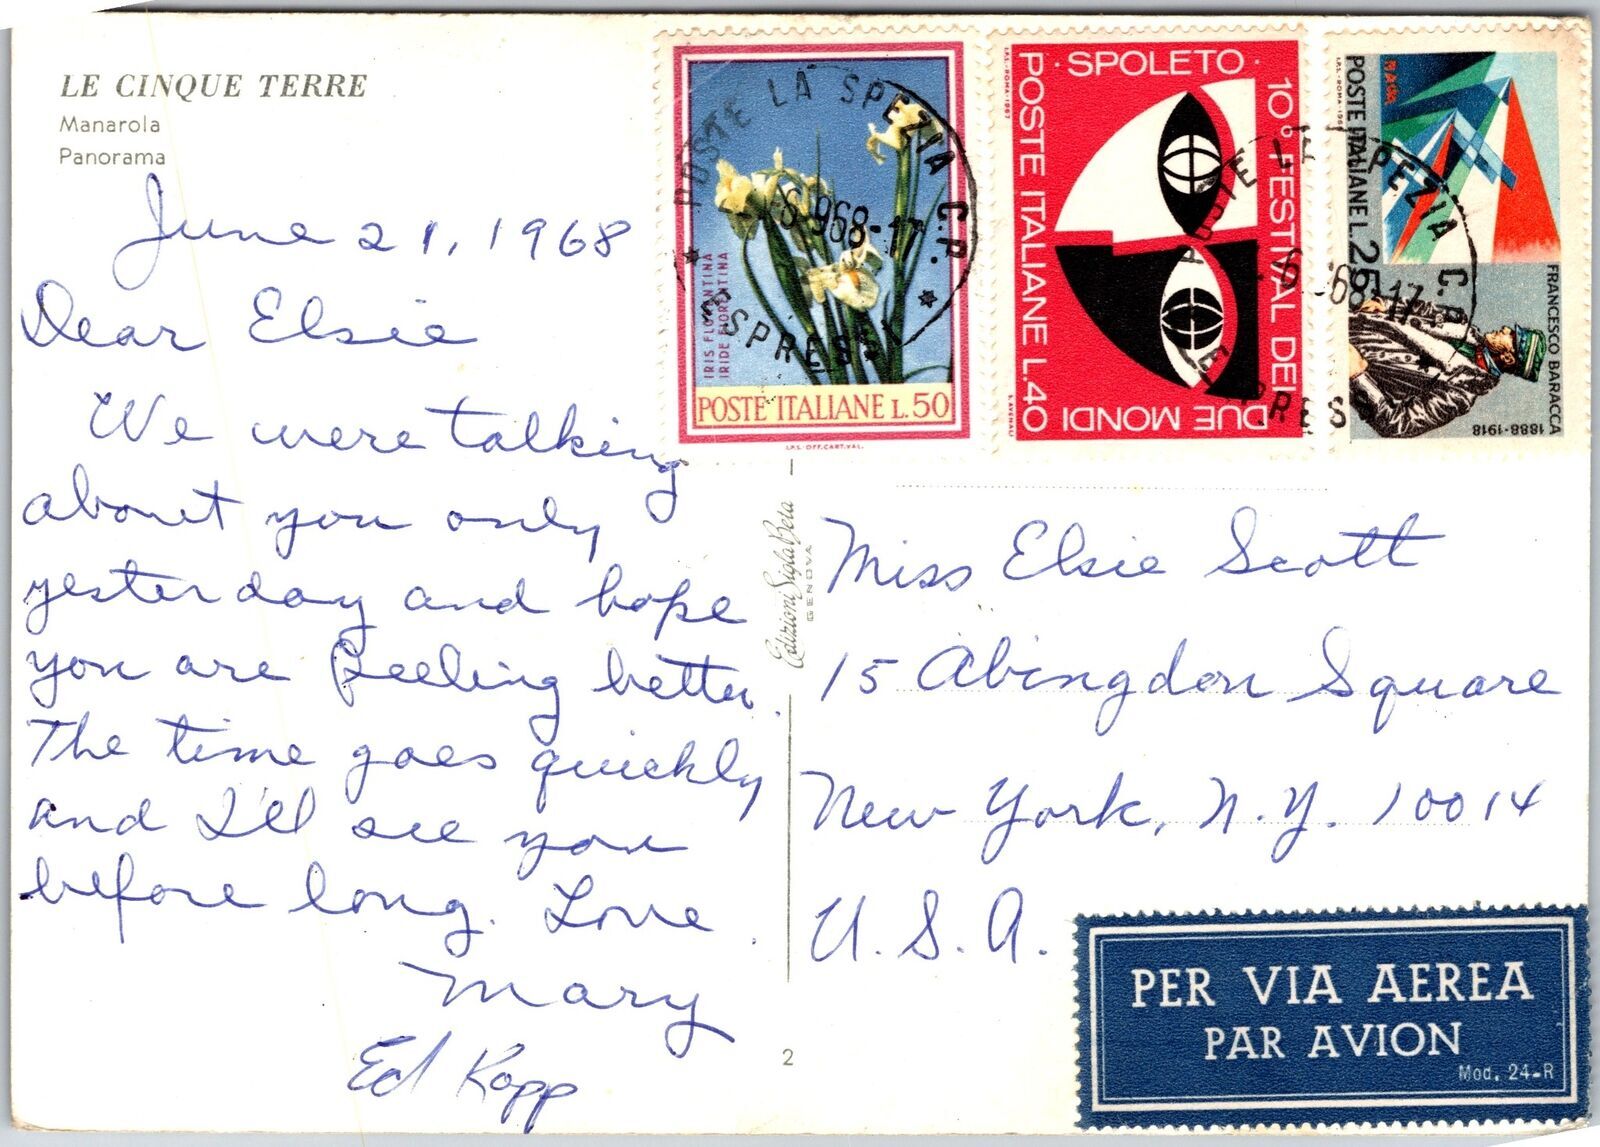 LE CINQUE TERRE
Manarola
Panorama
June 21, 1968
Dear Elsie
We were talking
about you only
yesterday and hope
you are feeling better.
The time goes quickly
and I'll see you
before long. Love
Mary
Ed Kopp
IRIS FLORENTINA
IRIDE FIORENTINA
POSTE ITALIANE L.50
I.P.S. OFF. CART. VAL.
POSTE LA SPEZIA C.P.
ESPRESSI
6.968-17
· SPOLETO · 10° FESTIVAL DEI DUE MONDI
POSTE ITALIANE L.40
I.P.S.-ROMA-1967
POSTE LA SPEZIA C.P.
ESPRESSI
POSTE ITALIANE L.25
I.P.S.-ROMA-1968
FRANCESCO BARACCA
1888-1918
Edizioni Sigla Beta
GENOVA
Miss Elsie Scott
15 Abingdon Square
New York, N.Y. 10014
U.S.A.
2
PER VIA AEREA
PAR AVION
Mod. 24-R